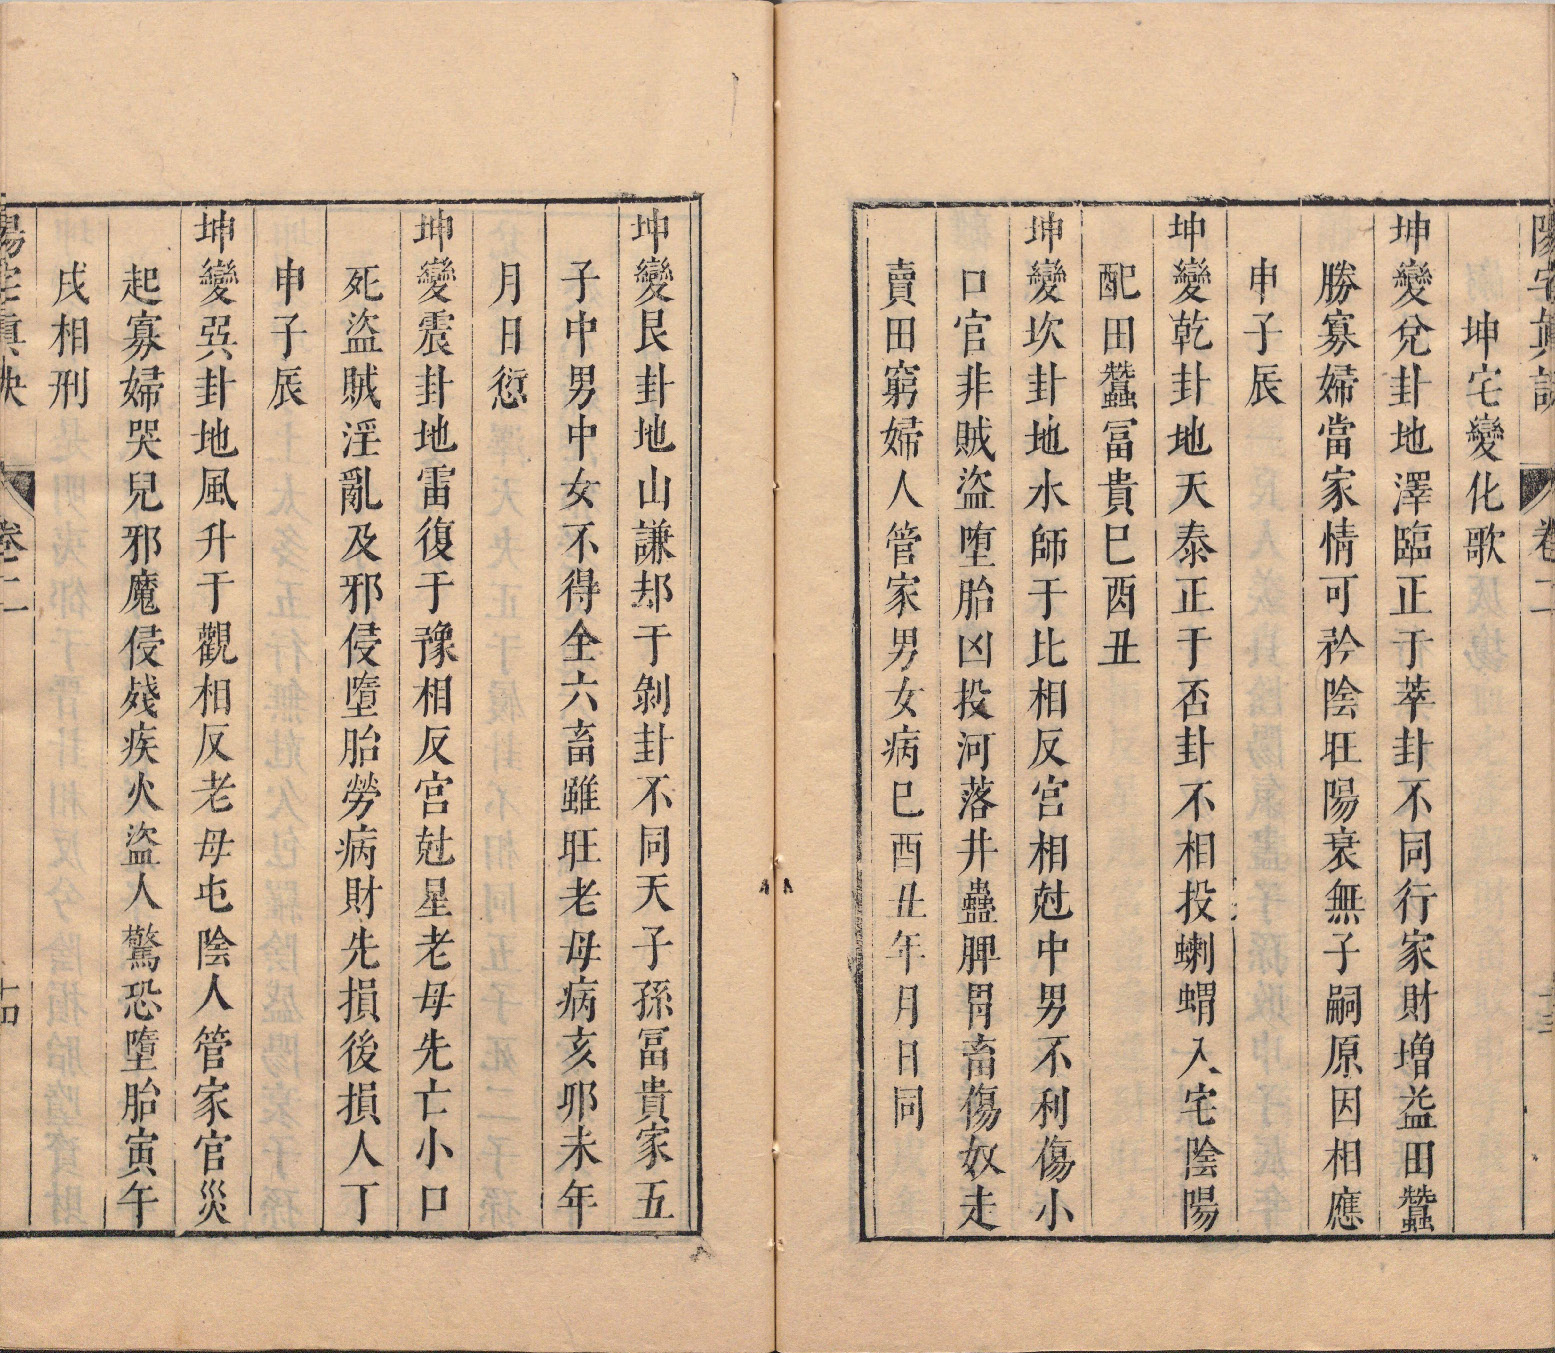 坤宅變化歌
坤變兌卦地澤臨正于萃卦不同行家財增益田蠶
勝寡婦當家情可矜陰旺陽衰無子嗣原因相應
申子辰
坤變乾卦地天泰正于否卦不相投蝲蝟入宅陰陽
配田蠶冨貴巳酉丑
坤變坎卦地水師于比相反宮相尅中男不利傷小
口官非賊盜堕胎凶投河落井蠱脾胃畜傷奴走
賣田窮婦人管家男女病巳酉丑年月日同
坤變艮卦地山謙却于剝卦不同天子孫冨貴家五
子中男中女不得全六畜雖旺老母病亥卯未年
月日愆
坤變震卦地雷復于豫相反宮尅星老母先亡小口
死盜賊淫亂及邪侵墮胎勞病財先損後損人丁
申子辰
坤變巽卦地風升于觀相反老母屯陰人管家官災
起寡婦哭兒邪魔侵殘疾火盜人驚恐墮胎寅午
戌相刑
卷二
十四